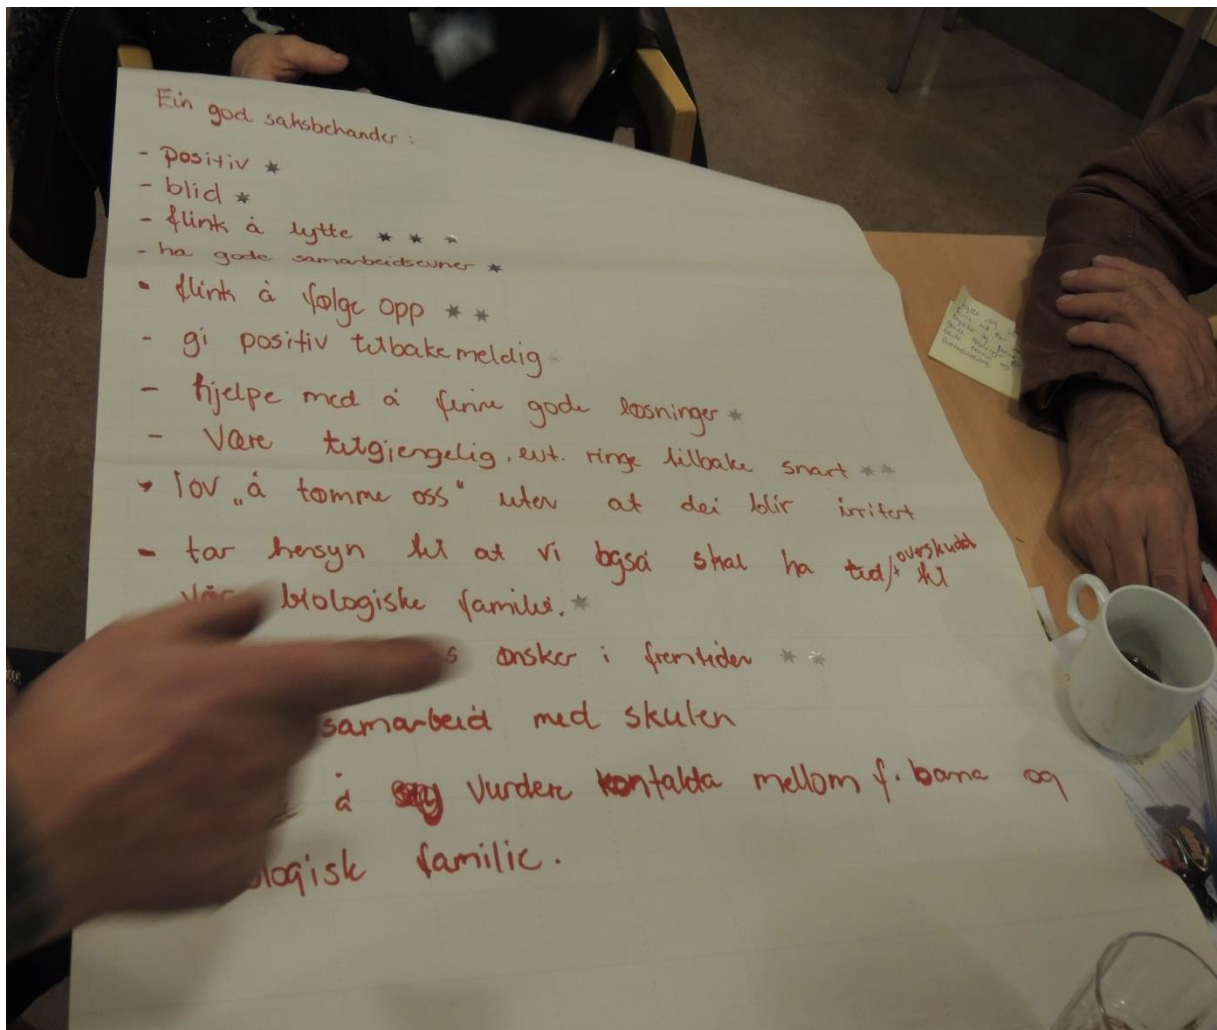 Ein god saksbehander :
- positiv *
- blid *
- flink å lytte * * *
- ha gode samarbeidsevner *
- flink å følge opp * *
- gi positiv tilbakemeldig *
- hjelpe med å finne gode løsninger *
- Være tilgjengelig, evt. ringe tilbake snart * *
- lov „å tømme oss" uten at dei blir irritert
- tar hensyn til at vi også skal ha tid/+ overskudd til
biologiske familie. *
ønsker i fremtiden * *
samarbeid med skulen
å vurdere kontakta mellom f. barna og
familie.